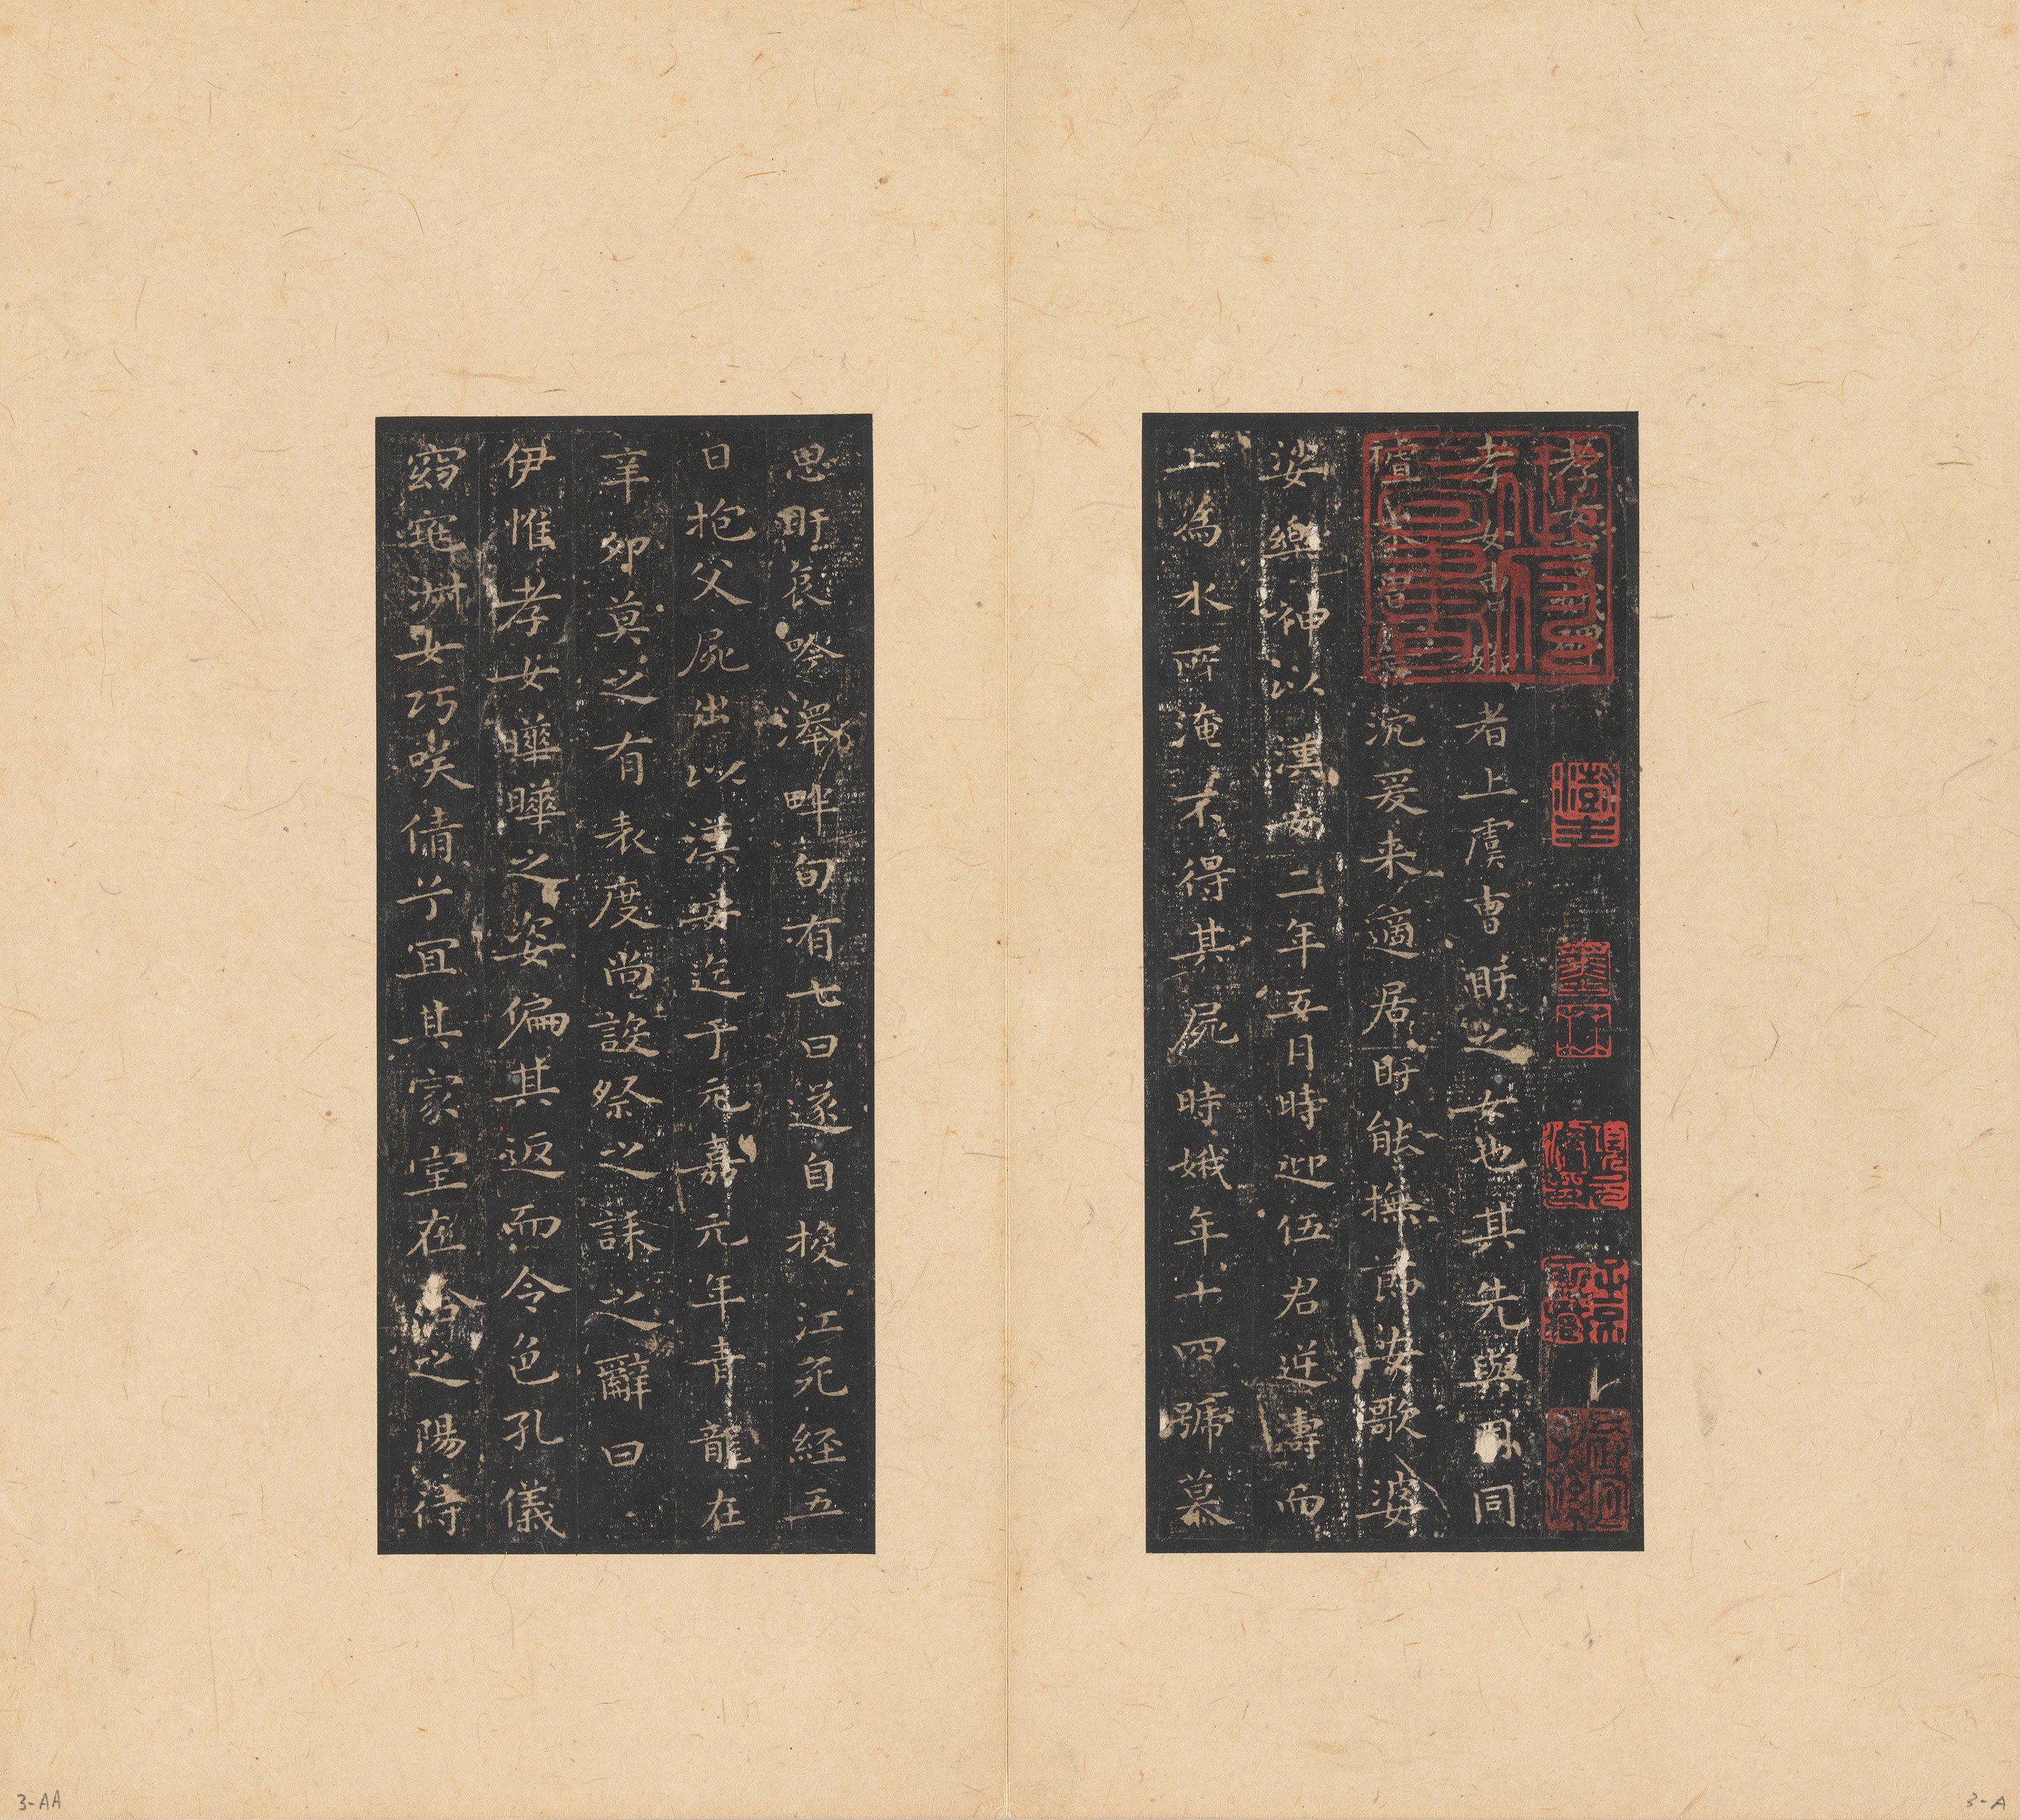 孝女曹娥碑
孝女曹娥者上虞曹盱之女也其先與周同
祖末冑荒沉爰来適居盱能撫節安歌婆
娑樂神以漢安二年五月時迎伍君逆濤而
上為水所淹不得其屍時娥年十四號慕
思盱哀吟澤畔旬有七日遂自投江死経五
日抱父屍出以漢安迄于元嘉元年青龍在
辛卯莫之有表度尚設祭之誄之辭曰
伊惟孝女曄曄之姿偏其返而令色孔儀
窈窕淑女巧咲倩兮冝其家室在洽之陽待
3-A
3-AA